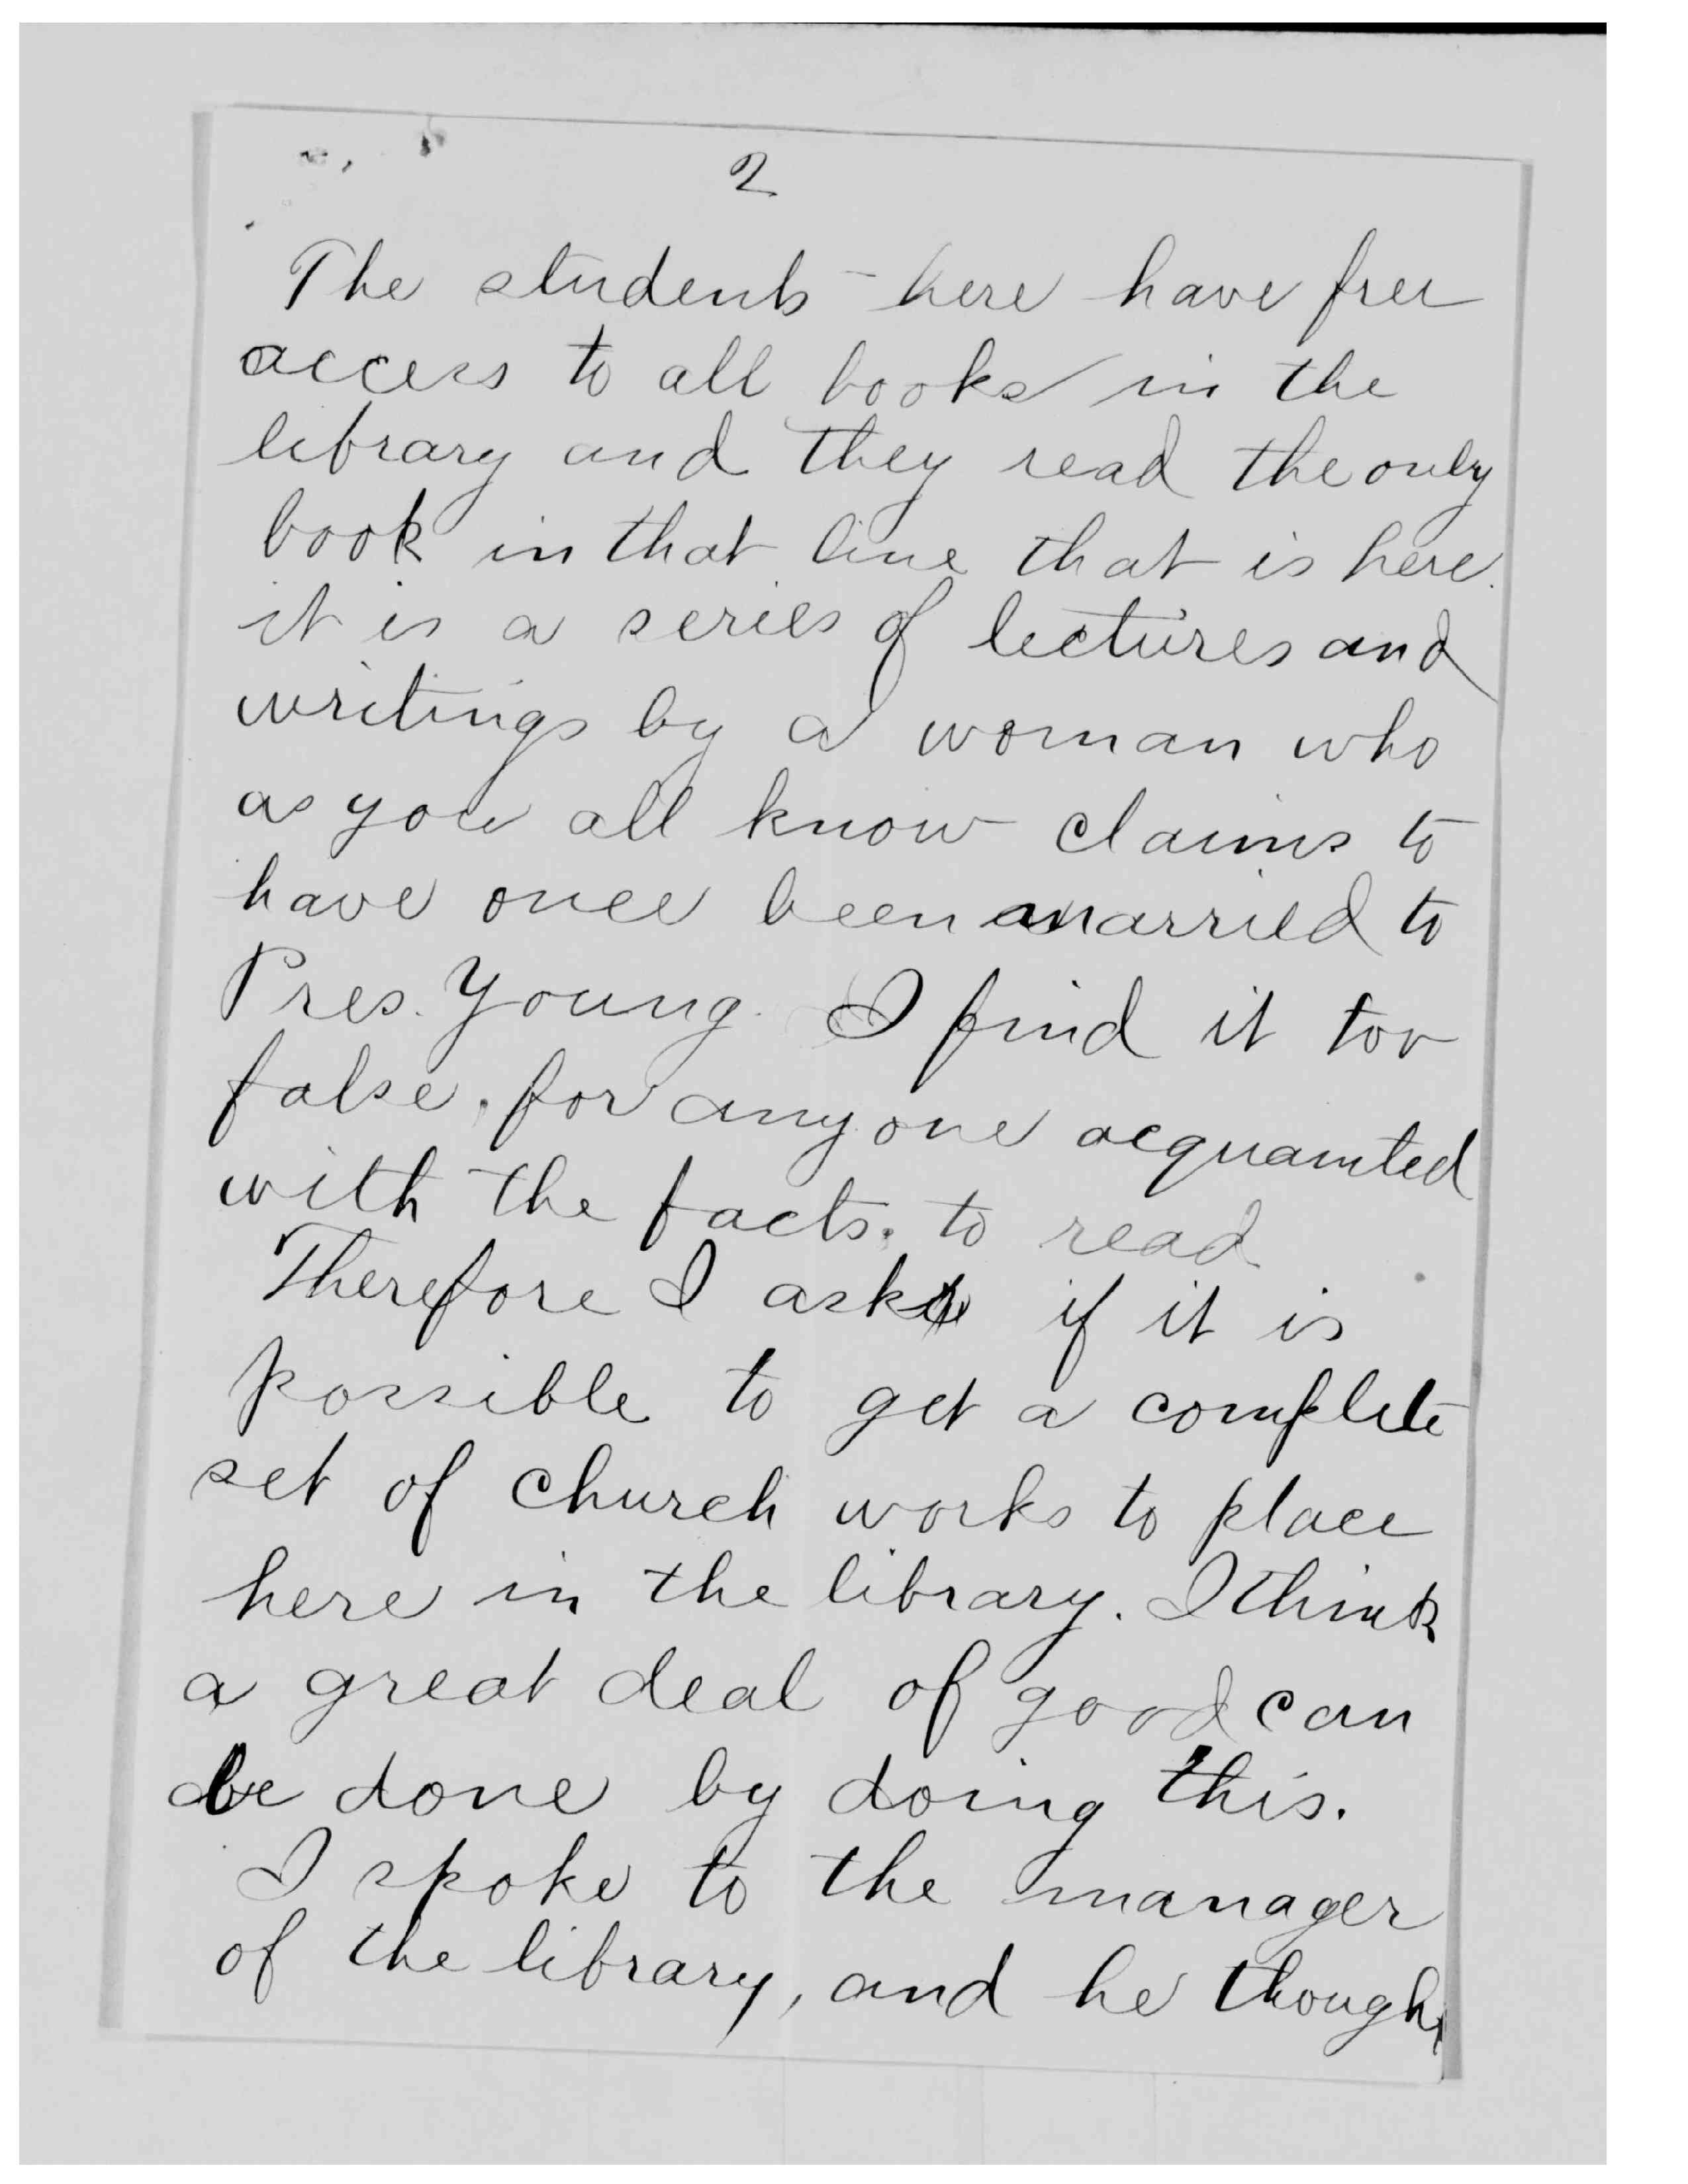 2
The students here have free
access to all books in the
library and they read the only
book in that line that is here.
it is a series of lectures and
writings by a woman who
as you all know claims to
have once been married to
Pres. Young. I find it too
false, for any one acquainted
with the facts. to read
Therefore I ask if it is
possible to get a complete
set of church works to place
here in the library. I think
a great deal of good can
be done by doing this.
I spoke to the manager
of the library, and he thought